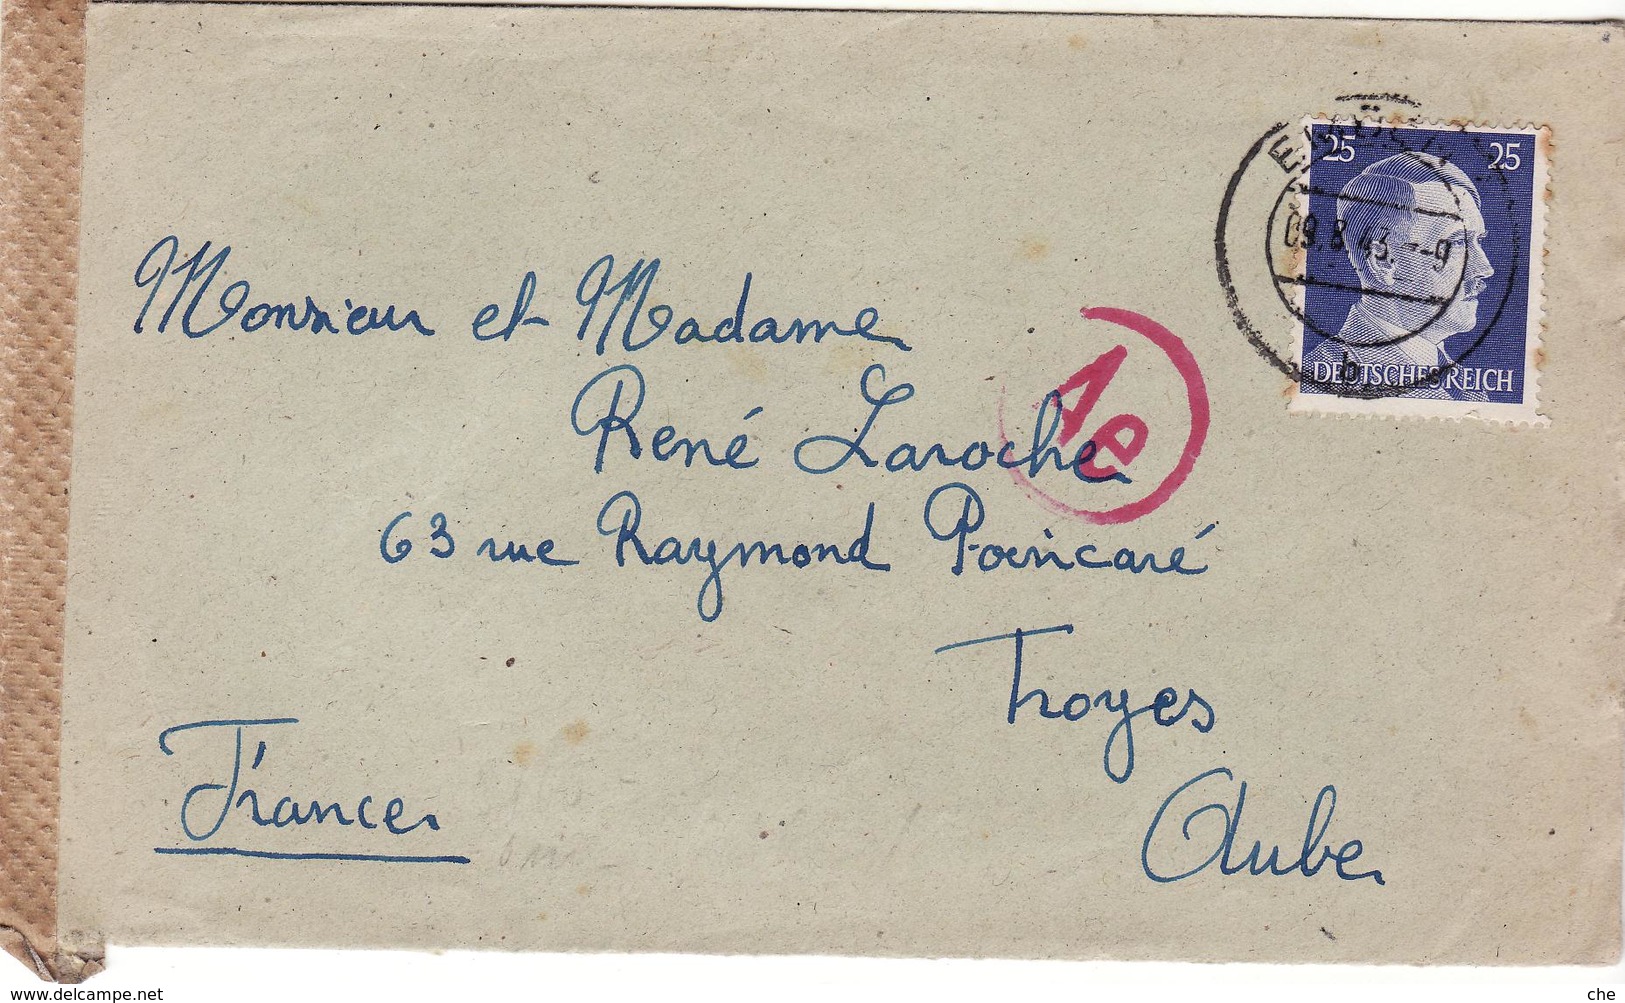 25 25
09.8.43.--9
b
DEUTSCHES REICH
Monsieur et Madame
René Laroche
Ae
63 rue Raymond Poincaré
Troyes
Aube
France
www.delcampe.net
che